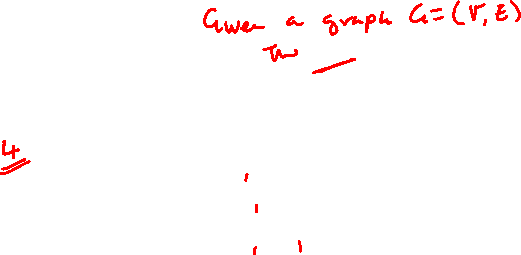 Given a graph G=(V,E)
4